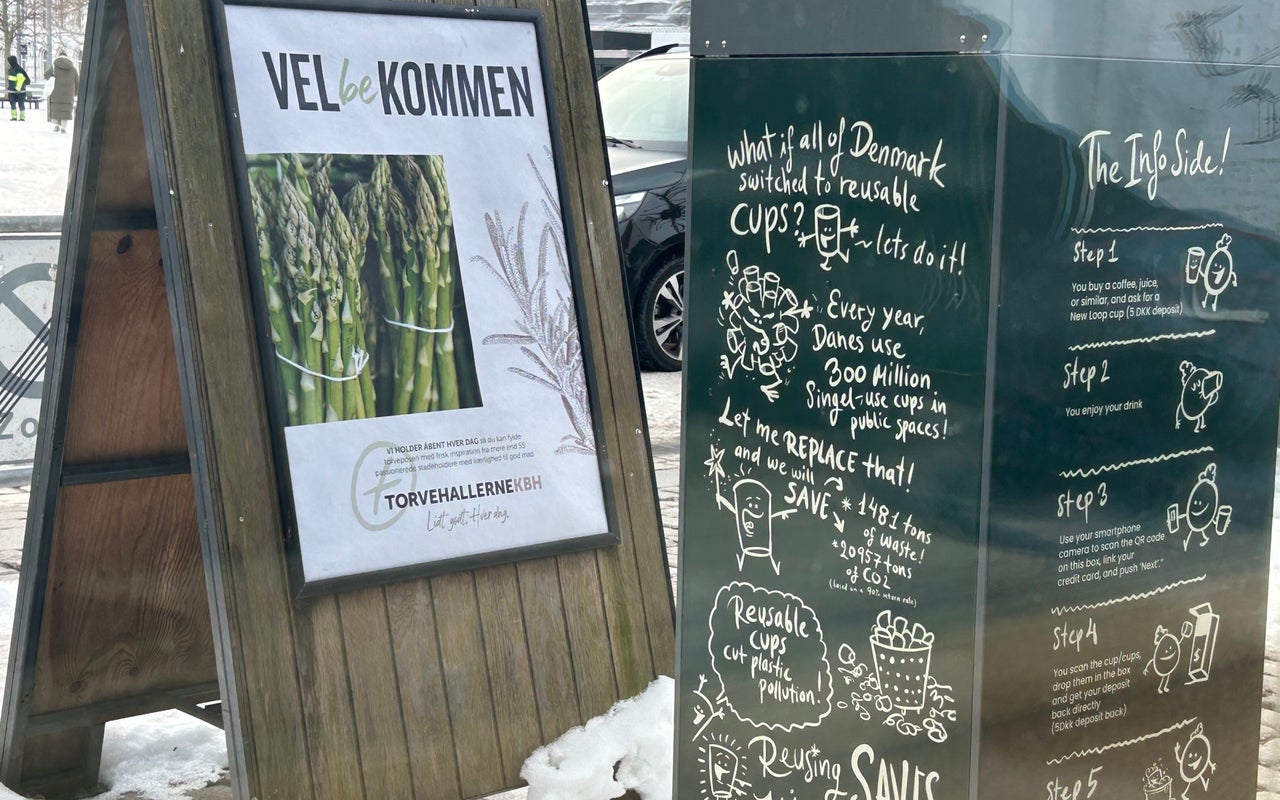 VELbeKOMMEN
VI HOLDER ÅBENT HVER DAG så du kan fylde
torveposen med frisk inspiration fra mere end 55
passionerede stadeholdere med kærlighed til god mad.
TORVEHALLERNEKBH
Lidt godt. Hver dag.
What if all of Denmark
switched to reusable
CUPS?
~lets do it!
Every year,
Danes use
300 Million
Singel-use cups in
public spaces!
Let me REPLACE that!
and we will
SAVE
* 1481 tons
of waste!
* 20957 tons
of CO2
(based on a 90% return rate)
Reusable
cups
cut plastic
pollution!
Reusing
SAVES
The Info Side!
Step 1
You buy a coffee, juice,
or similar, and ask for a
New Loop cup (5 DKK deposit)
Step 2
You enjoy your drink
Step 3
Use your smartphone
camera to scan the QR code
on this box, link your
credit card, and push 'Next'."
Step 4
You scan the cup/cups,
drop them in the box
and get your deposit
back directly
(5Dkk deposit back)
Step 5